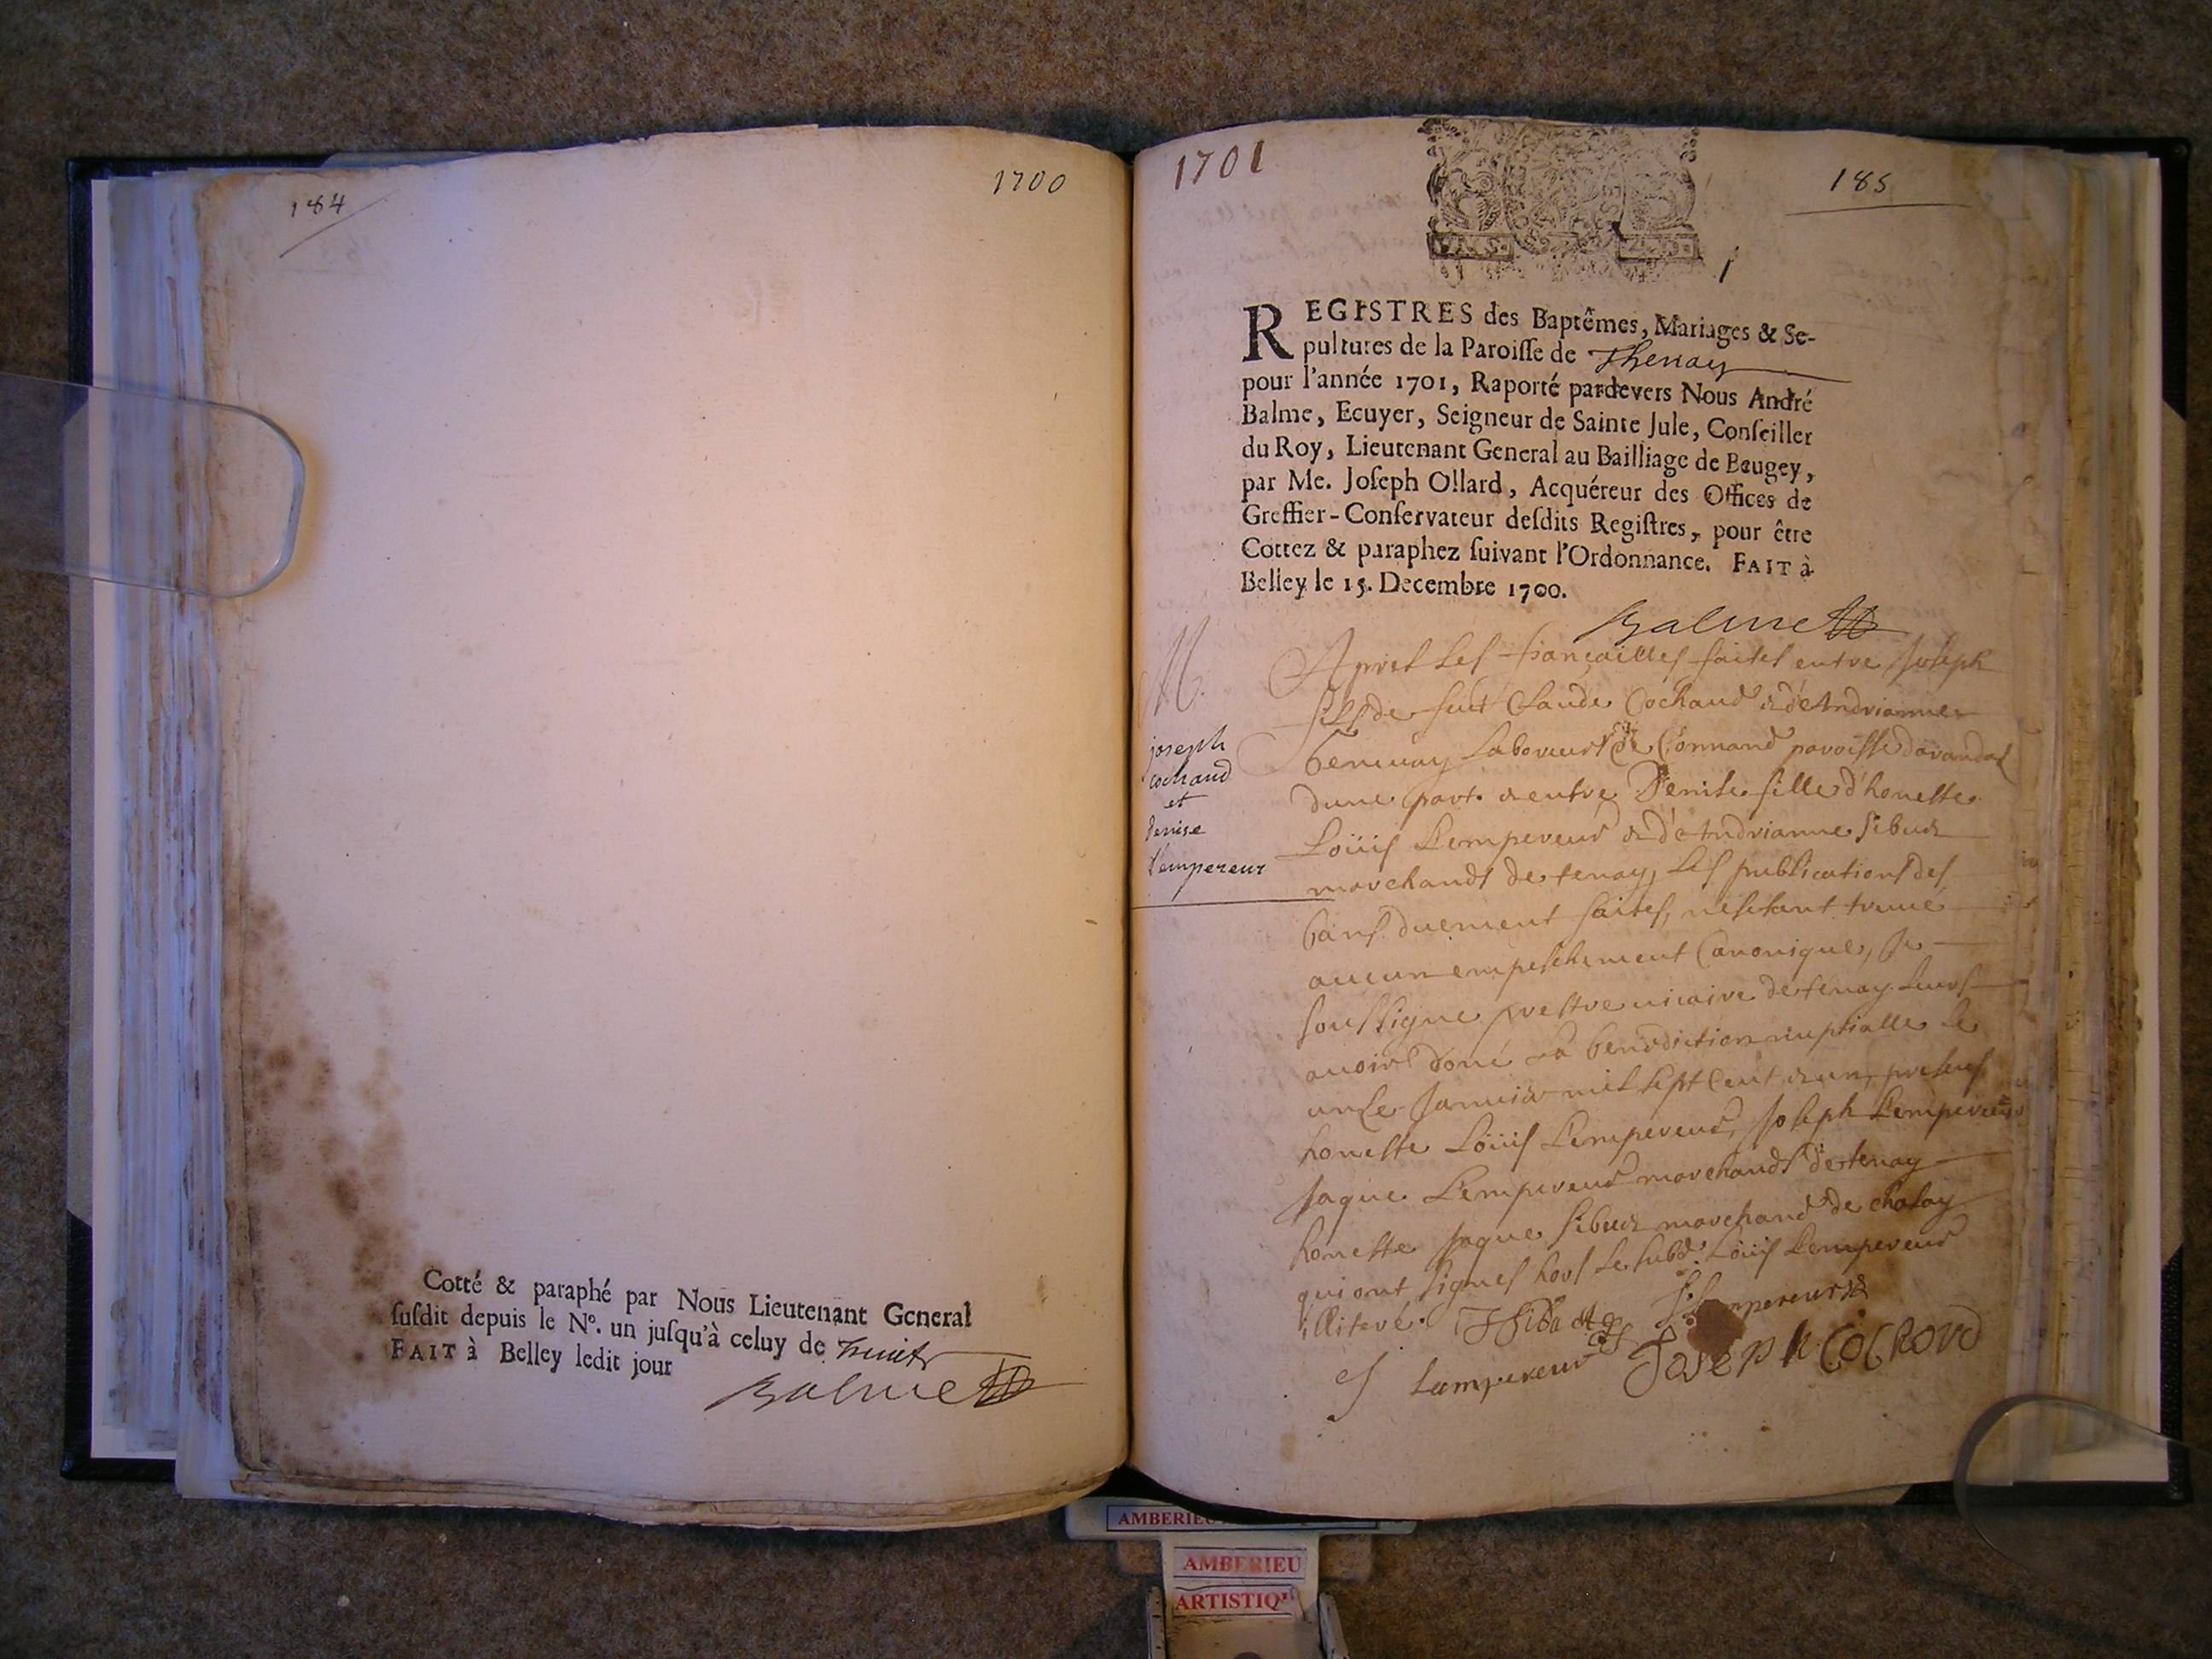 184
1700
Cotté & paraphé par Nous Lieutenant General
susdit depuis le N°. un jusqu'à celuy de
FAIT à Belley ledit jour
Balme
1701
185
1
REGISTRES des Baptêmes, Mariages & Se-
pultures de la Paroisse de Thenay
pour l'année 1701, Raporté pardevers Nous André
Balme, Ecuyer, Seigneur de Sainte Jule, Conseiller
du Roy, Lieutenant General au Bailliage de Beugey,
par Me. Joseph Ollard, Acquéreur des Offices de
Greffier-Conservateur desdits Registres, pour être
Cottez & paraphez suivant l'Ordonnance. FAIT à
Belley le 15. Decembre 1700.
Balme
M.
joseph
cochaud
et
denise
l'empereur
Apres les fiançailles faites entre Joseph
fils de feut Claude Cochaud & d'Andrianne
laboureur de Connand paroisse
dune part. & entre Denise fille d'honeste
Loüis Lempereur & d'Andrianne Sibuet
marchands de tenay, les publications des
bans duement faites, nestant treuué
aucun empeschement Canonique, Je
soussigne prestre uicaire de tenay leurs
auoir doné la benediction nuptialle le
unse Januier mil sept Cent & un, presens
honeste Loüis Lempereur, Joseph Lempereur
Jaque Lempereur marchands de tenay
honeste Jaque Sibuet marchand de chalay
qui ont signes hors le subd. Loüis Lempereur
illiteré.
Lempereur
Joseph Cochoud
AMBERIEU
AMBERIEU
ARTISTIQU